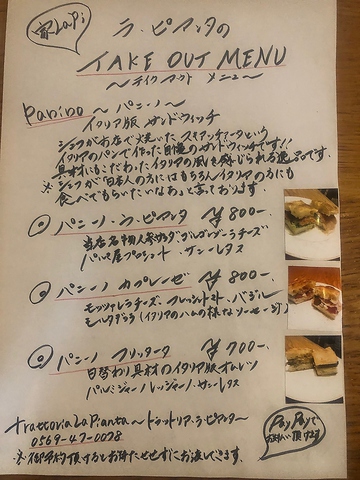 家LaPi
ラ・ピアンタの
TAKE OUT MENU
〜テイクアウト メニュー〜
Panino 〜パニーノ〜
イタリア版 サンドウィッチ
シェフがお店で火焼いた スキアッチャータという
イタリアのパンで作った自慢のサンドウィッチです!!
具材にもこだわったイタリアの風を感じられる逸品です.
※シェフが「日本人の方にはもちろんイタリアの方にも
食べてもらいたいなあ」と言っております
パニーノ・ラ・ピアンタ ¥800-.
当店名物人参サラダ.ゴルゴンゾーラチーズ
パルマ産プロシュット.サニーレタス
パニーノ カプレーゼ ¥800-
モッツァレラチーズ.フレッシュトマト.バジル
モルタデッラ(イタリアのハムの様なソーセージ)
パニーノ フリッタータ ¥700-.
日替わり具材のイタリア版オムレツ
パルミジャーノレッジャーノ.サニーレタス
trattoria La Pianta〜トラットリア・ラ・ピアンタ〜
0569-47-0028
※御予約頂けるとお待たせせずにお渡しできます.
PayPayで
お支払い頂けます